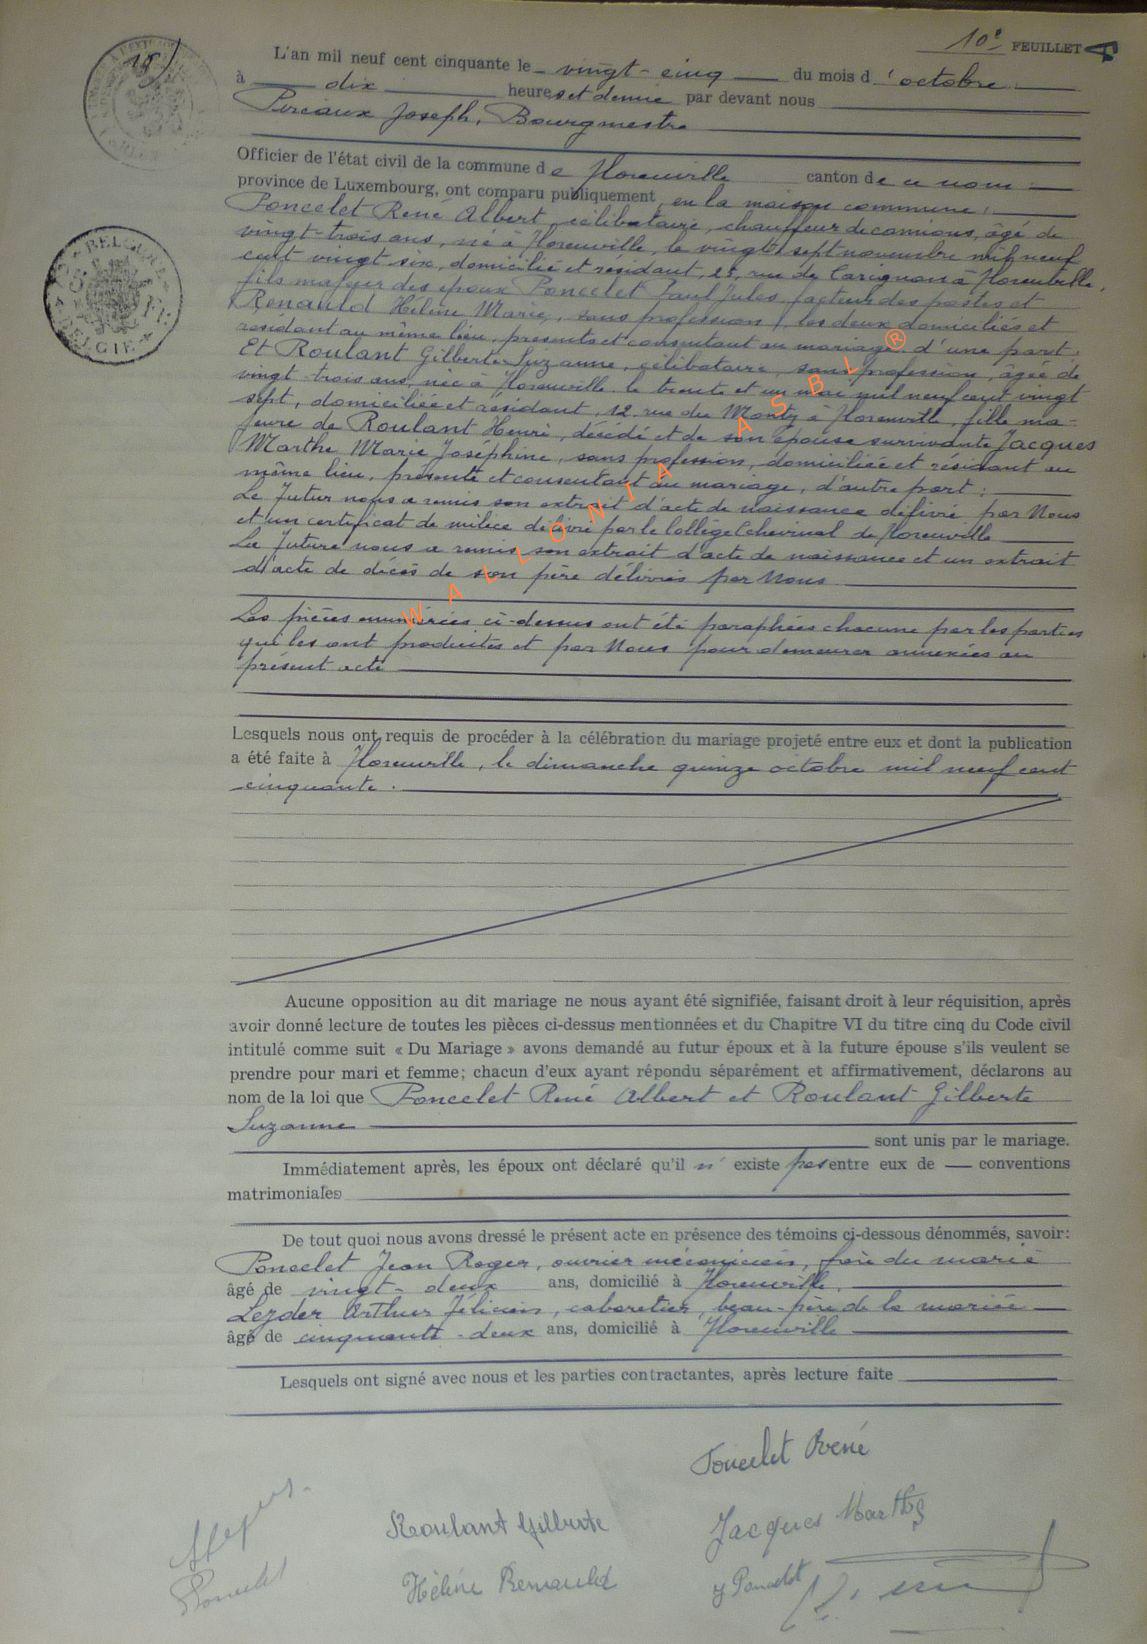 10e FEUILLET
L'an mil neuf cent cinquante le vingt-cinq du mois d'octobre
à dix heures et demie par devant nous
Joseph, Bourgmestre
Officier de l'état civil de la commune de Florenville canton de ce nom
province de Luxembourg, ont comparu publiquement en la maison commune :
Poncelet René Albert, célibataire, chauffeur de camions, âgé de
vingt-trois ans, né à Florenville, le vingt-sept novembre mil neuf
cent vingt-six, domicilié et résidant, 25, rue de Carignan à Florenville,
fils majeur des époux Poncelet Paul Jules, facteur des postes et
Renauld Hélène Marie, sans profession, les deux domiciliés et
résidant au même lieu, présents et consentant au mariage d'une part.
Et Roulant Gilberte Suzanne, célibataire, sans profession, âgée de
vingt-trois ans, née à Florenville le trente et un mai mil neuf cent vingt
sept, domiciliée et résidant, 12, rue du à Florenville, fille ma-
jeure de Roulant Henri, décédé et de son épouse survivante Jacques
Marthe Marie Joséphine, sans profession, domiciliée et résidant au
même lieu, présente et consentant au mariage, d'autre part ;
Le futur nous a remis son extrait d'acte de naissance délivré par Nous
et un certificat de milice délivré par le Collège Echevinal de Florenville
La future nous a remis son extrait d'acte de naissance et un extrait
d'acte de décès de son père délivrés par Nous
Les pièces énumérées ci-dessus ont été paraphées chacune par les parties
qui les ont produites et par Nous pour demeurer annexées au
présent acte
Lesquels nous ont requis de procéder à la célébration du mariage projeté entre eux et dont la publication
a été faite à Florenville, le dimanche quinze octobre mil neuf cent
cinquante.
Aucune opposition au dit mariage ne nous ayant été signifiée, faisant droit à leur réquisition, après
avoir donné lecture de toutes les pièces ci-dessus mentionnées et du Chapitre VI du titre cinq du Code civil
intitulé comme suit « Du Mariage » avons demandé au futur époux et à la future épouse s'ils veulent se
prendre pour mari et femme; chacun d'eux ayant répondu séparément et affirmativement, déclarons au
nom de la loi que Poncelet René Albert et Roulant Gilberte
Suzanne
sont unis par le mariage.
Immédiatement après, les époux ont déclaré qu'il n'existe pas entre eux de — conventions
matrimoniales
De tout quoi nous avons dressé le présent acte en présence des témoins ci-dessous dénommés, savoir:
Poncelet Jean Roger, ouvrier mécanicien, frère du marié
âgé de vingt-deux ans, domicilié à Florenville,
Arthur Félicien, cabaretier, beau-père de la mariée
âgé de cinquante-deux ans, domicilié à Florenville
Lesquels ont signé avec nous et les parties contractantes, après lecture faite
Poncelet René
Roulant Gilberte
Jacques Marthe
Poncelet
Hélène Renauld
J Poncelet
WALLONIA ASBL ®